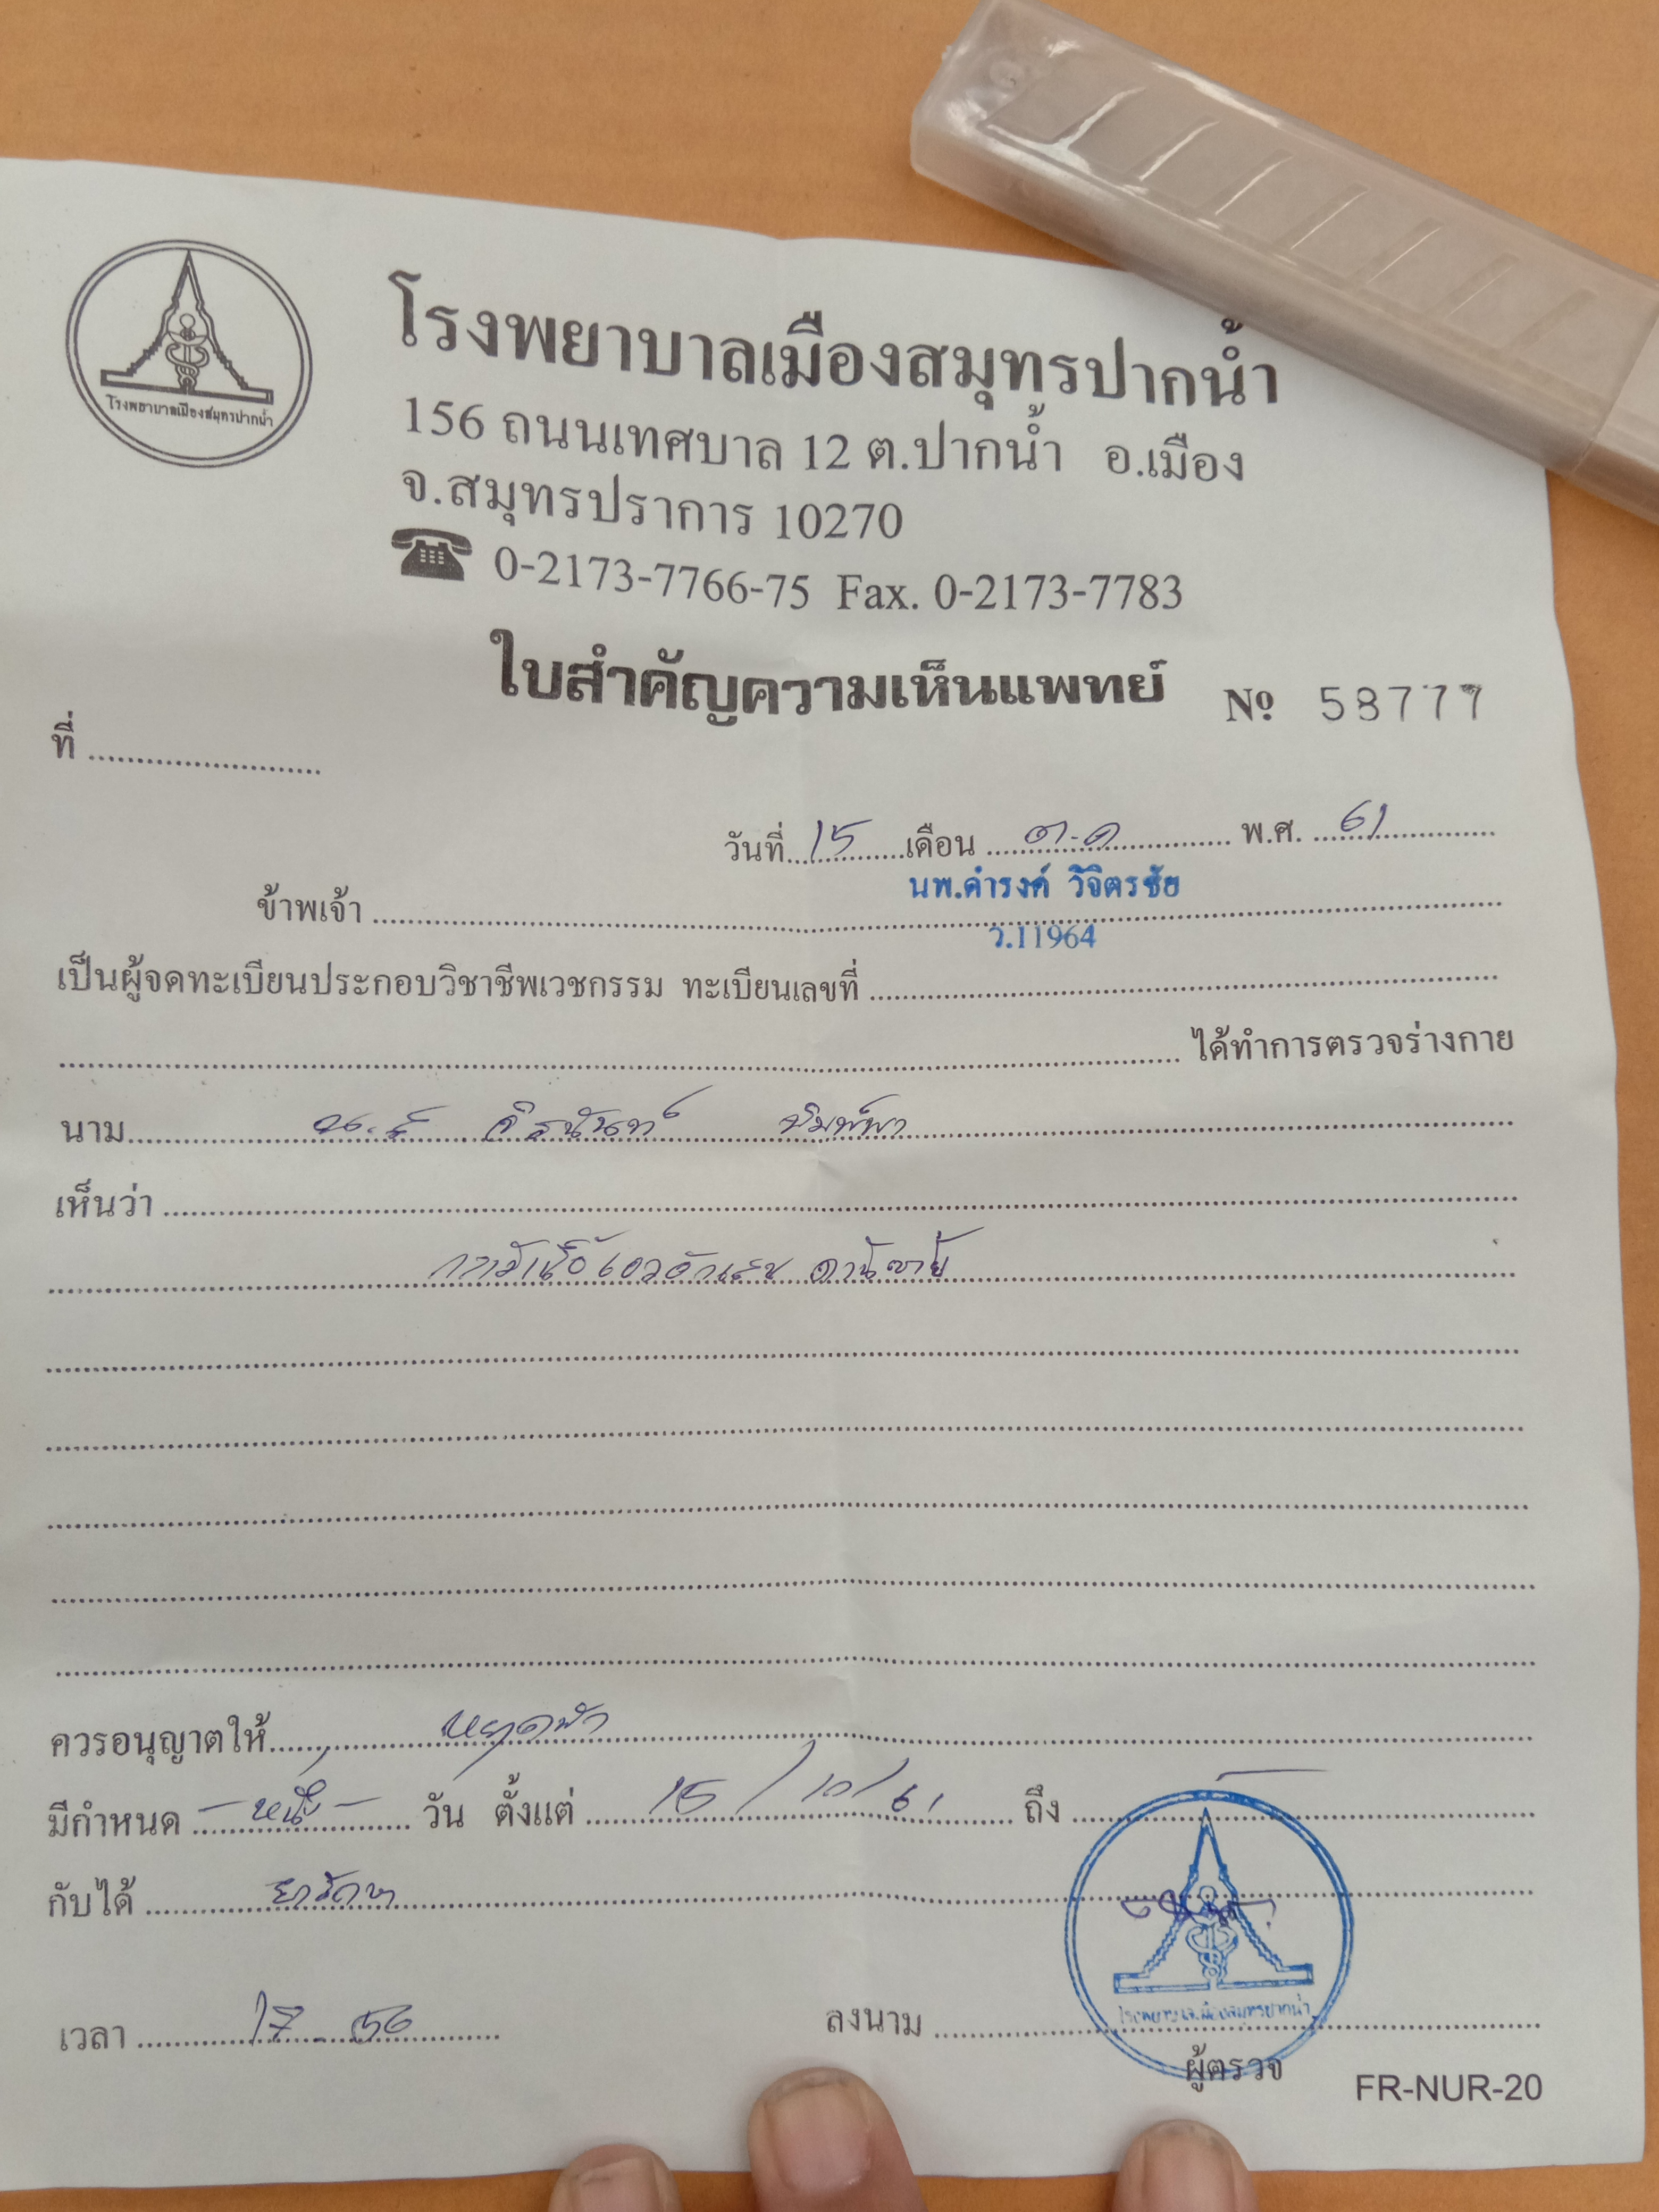 โรงพยาบาลเมืองสมุทรปากน้ำ
โรงพยาบาลเมืองสมุทรปากน้ำ
156 ถนนเทศบาล 12 ต.ปากน้ำ อ.เมือง
จ.สมุทรปราการ 10270
0-2173-7766-75 Fax. 0-2173-7783
ใบสำคัญความเห็นแพทย์ № 58777
ที่
วันที่ 15 เดือน ต.ค พ.ศ. 61
นพ.ดำรงค์ วิจิตรชัย
ข้าพเจ้า
ว.11964
เป็นผู้จดทะเบียนประกอบวิชาชีพเวชกรรม ทะเบียนเลขที่
ได้ทำการตรวจร่างกาย
นาม น.ส จิรนันท์ พิมพ์พา
เห็นว่า
กล้ามเนื้อเอวอักเสบ ด้านซ้าย
ควรอนุญาตให้ หยุดพัก
มีกำหนด - หนึ่ง - วัน ตั้งแต่ 15/10/61 ถึง
กับได้ ยารักษา
เวลา 17.56 ลงนาม
โรงพยาบาลเมืองสมุทรปากน้ำ
ผู้ตรวจ
FR-NUR-20